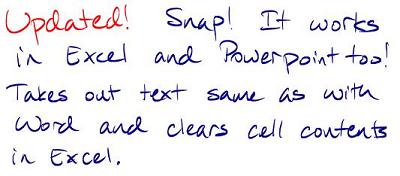 Updated! Snap! It works
in Excel and Powerpoint too!
Takes out text same as with
Word and clears cell contents
in Excel.